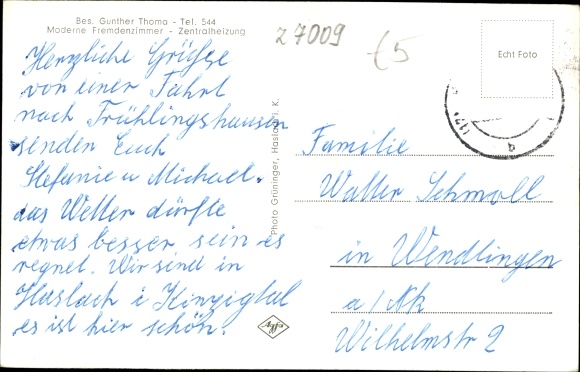 Bes. Gunther Thoma - Tel. 544
Moderne Fremdenzimmer - Zentralheizung
z 7009
£5
Echt Foto
Herzliche Grüße
von einer Fahrt
nach Frühlingshausen
senden Euch
Stefanie u Michael.
das Wetter dürfte
etwas besser sein es
regnet. Wir sind in
Haslach i Kinzigtal
es ist hier schön.
Photo Grüninger, Haslach i. K.
Agfa
Familie
Walter Schmoll
in Wendlingen
a / Nk
Wilhelmstr 2
b